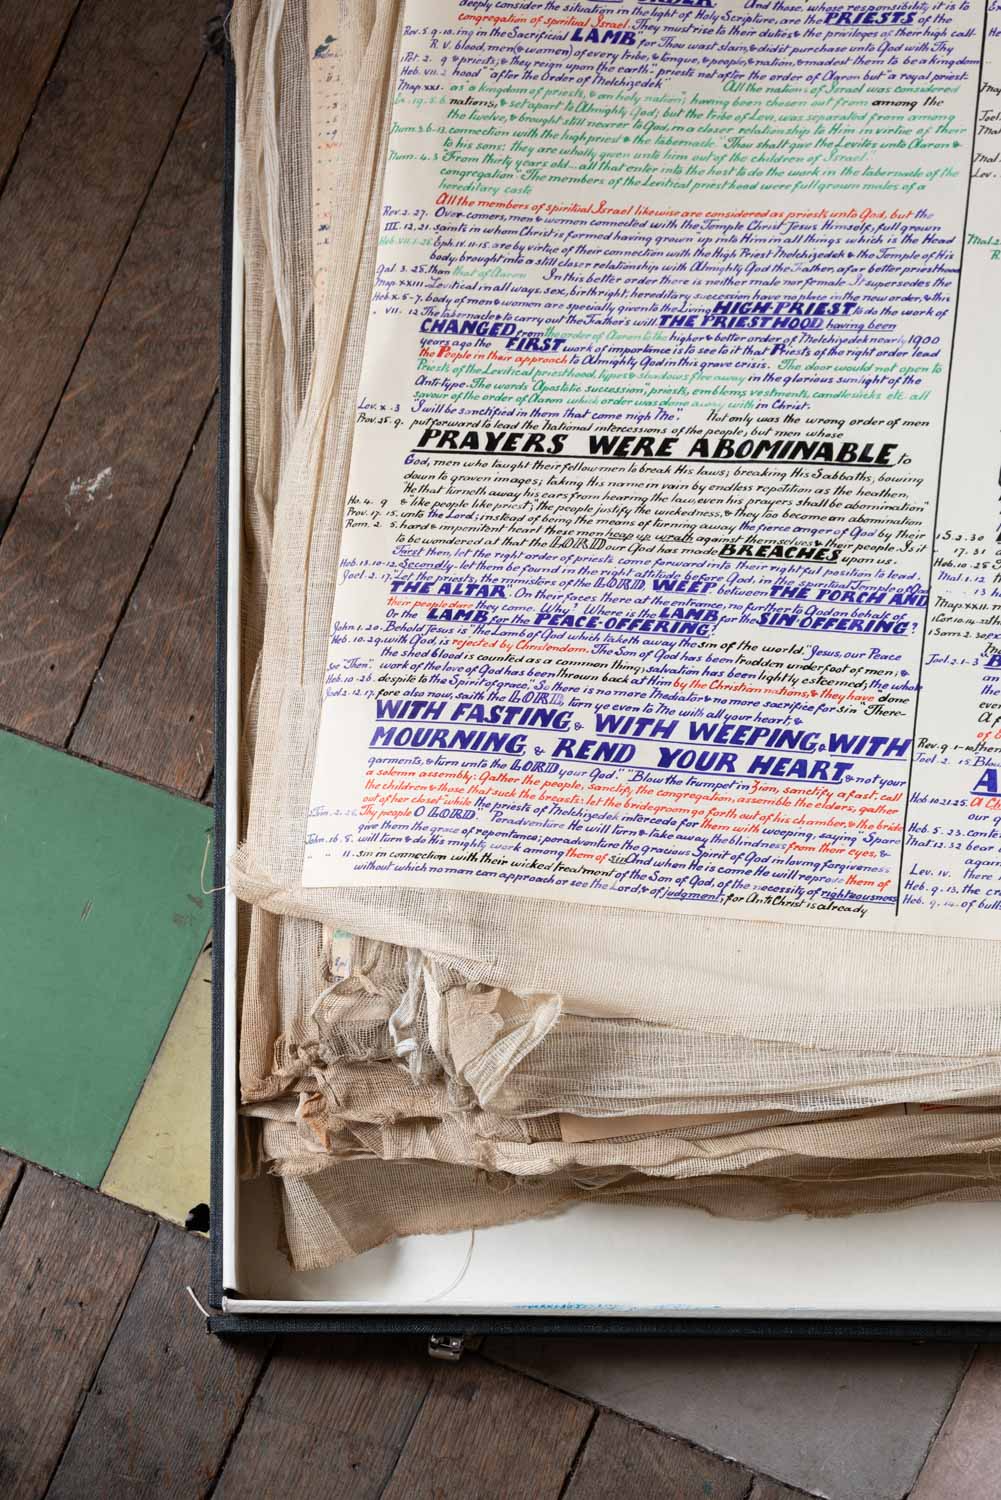 ORDER And those, whose responsibility it is to
deeply consider the situation in the light of Holy Scripture, are the PRIESTS of the
congregation of spiritual Israel. They must rise to their duties & the privileges of their high call-
Rev. 5. 9. 10. ing in the Sacrificial LAMB "for Thou wast slain, & didst purchase unto God with Thy
R. V. blood, men (& women) of every tribe, & tongue, & people, & nation, & madest them to be a kingdom
1 Pet. 2. 9 & priests; & they reign upon the earth": priests not after the order of Aaron but "a royal priest-
Heb. VII. 2 hood" "after the Order of Melchizedek" All the nation of Israel was considered
Map. XXI. as "a kingdom of priests, & an holy nation"; having been chosen out from among the
Ex. 19. 5. 6. nations, & set apart to Almighty God; but the tribe of Levi, was separated from among
the twelve, & brought still nearer to God, in a closer relationship to Him in virtue of their
Num. 3. 6-13. connection with the high priest & the tabernacle. "Thou shalt give the Levites unto Aaron &
to his sons: they are wholly given unto him out of the children of Israel...
Num. 4. 3 "From thirty years old... all that enter into the host to do the work in the tabernacle of the
congregation" The members of the Levitical priesthood were full grown males of a
hereditary caste
All the members of spiritual Israel likewise are considered as priests unto God, but the
Rev. 2. 27. Over-comers, men & women connected with the Temple Christ Jesus Himself; full grown
III. 12. 21. saints in whom Christ is formed having grown up into Him in all things which is the Head
Heb. VII. 1-28. Eph. IV. 11-15. are by virtue of their connection with the High Priest Melchizedek & the Temple of His
body, brought into a still closer relationship with Almighty God the Father, a far better priesthood
Gal. 3. 25. than that of Aaron In this better order there is neither male nor female It supersedes the
Map XXIII Levitical in all ways, sex, birthright, hereditary succession have no place in the new order, & this
Heb. X. 5-7. body of men & women are, specially given to the Living HIGH-PRIEST to do the work of
" VII. 12 The tabernacle & to carry out the Father's will. THE PRIESTHOOD having been
CHANGED from the order of Aaron to the higher & better order of Melchizedek nearly 1900
years ago the FIRST work of importance is to see to it that Priests of the right order lead
the People in their approach to Almighty God in this grave crisis. The door would not open to
Priests of the Levitical priesthood, types & shadows flee away in the glorious sunlight of the
Anti-type. The words "Apostolic succession", priests, emblems, vestments, candlesticks etc. all
savour of the order of Aaron which order was done away with in Christ.
Lev. X. 3 "I will be sanctified in them that come nigh Me". Not only was the wrong order of men
Prov. 25. 9. put forward to lead the National intercessions of the people, but men whose
PRAYERS WERE ABOMINABLE to
God, men who taught their fellow men to break His laws; breaking His Sabbaths, bowing
down to graven images; taking His name in vain by endless repetition as the heathen,
"He that turneth away his ears from hearing the law, even his prayers shall be abomination"
Ho. 4. 9 & "like people like priest"; the people justify the wickedness, & they too become an abomination
Prov. 17. 15. unto the Lord; instead of being the means of turning away the fierce anger of God by their
Rom. 2. 5. hard & impenitent heart these men heap up wrath against themselves & their people. Is it
to be wondered at that the LORD our God has made BREACHES upon us.
First then, let the right order of priests come forward into their rightful position to lead.
Heb. 13. 10-12. Secondly. let them be found in the right attitude before God, in the spiritual Temple of God
Joel. 2. 17. "Let the priests, the ministers of the LORD WEEP, between THE PORCH AND
THE ALTAR. On their faces there at the entrance, no further to God on behalf of
their people dare they come. Why? Where is the LAMB for the SIN-OFFERING?
Or the LAMB for the PEACE-OFFERING?
John. 1. 20. Behold Jesus is "the Lamb of God which taketh away the sin of the world." Jesus, our Peace
Heb. 10. 29. with God, is rejected by Christendom. The Son of God has been trodden under foot of men; &
the shed blood is counted as a common thing; salvation has been lightly esteemed; the whole
See "Then". work of the love of God has been thrown back at Him by the Christian nations, & they have "done
Heb. 10. 26. despite to the Spirit of grace." So there is no more Mediator & no more sacrifice for sin "There-
Joel. 2. 12. 17. fore also now, saith the LORD, turn ye even to Me with all your heart, &
WITH FASTING, & WITH WEEPING, & WITH
MOURNING, & REND YOUR HEART, & not your
garments, & turn unto the LORD your God." "Blow the trumpet in Zion, sanctify a fast, call
a solemn assembly: Gather the people, sanctify the congregation, assemble the elders, gather
the children & those that suck the breasts: let the bridegroom go forth out of his chamber, & the bride
out of her closet while the priests of Melchizedek intercede for them with weeping, saying "Spare
Thy people O LORD. Peradventure He will turn & take away the blindness from their eyes, &
give them the grace of repentance; peradventure the gracious Spirit of God in loving forgiveness
John. 16. 8. will turn & do His mighty work among them of sin And when He is come He will reprove them of
" " 11. sin in connection with their wicked treatment of the Son of God, of the necessity of righteousness
without which no man can approach or see the Lord, & of judgment; for Anti Christ is already
Joel
Lev.
Mal. 2.
1 S. 2. 30
" 17. 31
Heb. 10. 28
Mal. 1. 12
" 13
Map. XXII.
1 Cor. 10. 14
1 Sam. 2. 30
Joel. 2. 1-3
Rev. 9. 1-10. then
Joel. 2. 15. Blow
Heb. 10. 21 25. A
our
Heb. 5. 23. conte
Mat. 12. 32 bear
again
Lev. IV. there
Heb. 9. 13. the
Heb. 9. 14. of bull